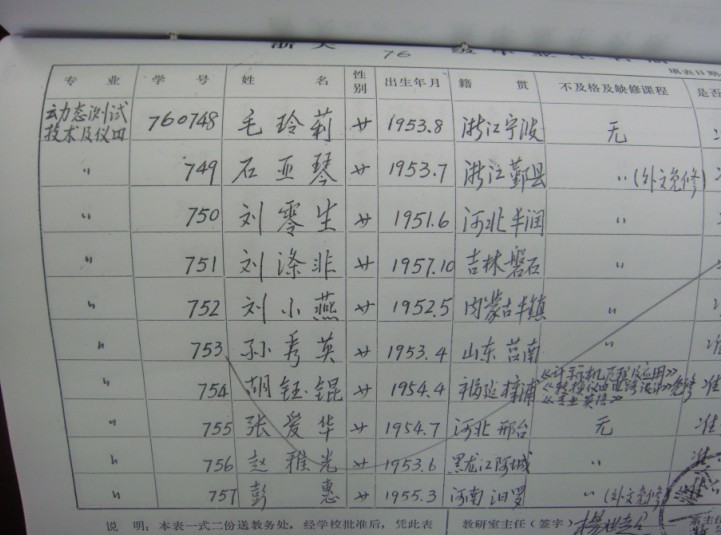 76
填表日期
专业 学号 姓名 性别 出生年月 籍贯 不及格及缺修课程 是否
动态测试技术及仪四 760748 毛玲莉 女 1953.8 浙江宁波 无
〃 749 石亚琴 女 1953.7 浙江鄞县 〃(外文免修)
〃 750 刘零生 女 1951.6 河北丰润 〃
〃 751 刘涤非 女 1957.10 吉林磐石 〃
〃 752 刘小燕 女 1952.5 内蒙古丰镇 〃
〃 753 孙秀英 女 1953.4 山东莒南 〃 准
〃 754 胡钰锟 女 1954.4 福建漳浦 免修 准
〃 755 张爱华 女 1954.7 河北邢台 无 准
〃 756 赵雅光 女 1953.6 黑龙江阿城 〃 准
〃 757 彭惠 女 1955.3 河南汨罗 〃(外文免修)
说明:本表一式二份送教务处,经学校批准后,凭此表 教研室主任(签字)